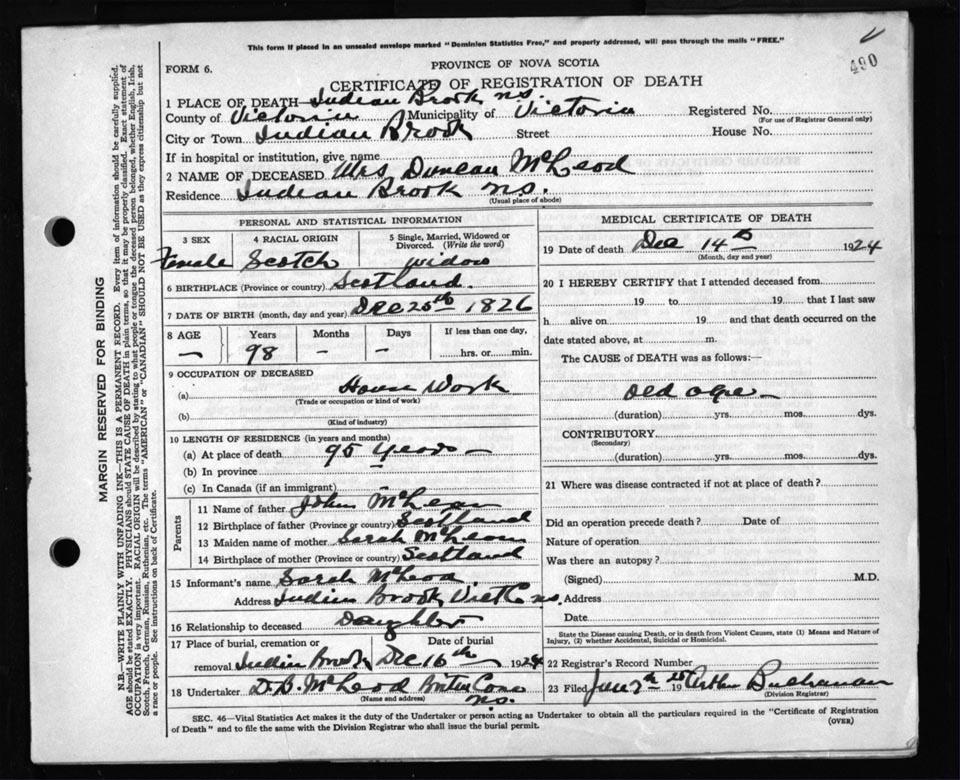 This form if placed in an unsealed envelope marked "Dominion Statistics Free," and properly addressed, will pass through the mails "FREE."
490
FORM 6.
PROVINCE OF NOVA SCOTIA
CERTIFICATE OF REGISTRATION OF DEATH
1 PLACE OF DEATH Indian Brook N.S.
County of Victoria Municipality of Victoria Registered No.
(For use of Registrar General only)
City or Town Indian Brook Street House No.
If in hospital or institution, give name
2 NAME OF DECEASED Mrs Duncan McLeod
Residence Indian Brook N.S.
(Usual place of abode)
PERSONAL AND STATISTICAL INFORMATION
3 SEX 4 RACIAL ORIGIN 5 Single, Married, Widowed or Divorced. (Write the word)
Female Scotch widow
6 BIRTHPLACE (Province or country) Scotland.
7 DATE OF BIRTH (month, day and year) Dec 25th 1826
8 AGE Years Months Days If less than one day,
— 98 – – hrs. or min.
9 OCCUPATION OF DECEASED
(a) House Work
(Trade or occupation or kind of work)
(b)
(Kind of industry)
10 LENGTH OF RESIDENCE (in years and months)
(a) At place of death 95 Years
(b) In province
(c) In Canada (if an immigrant)
Parents
11 Name of father John McLean
12 Birthplace of father (Province or country) Scotland
13 Maiden name of mother Sarah
14 Birthplace of mother (Province or country) Scotland
15 Informant's name Sarah McLeod
Address Indian Brook Vict Co N.S.
16 Relationship to deceased Daughter
17 Place of burial, cremation or Date of burial
removal Indian Brook Dec 16th 1924
18 Undertaker D. B. McLeod
(Name and address)
N.S.
MEDICAL CERTIFICATE OF DEATH
19 Date of death Dec 14th 1924
(Month, day and year)
20 I HEREBY CERTIFY that I attended deceased from
19 to 19 that I last saw
h alive on 19 and that death occurred on the
date stated above, at m.
The CAUSE of DEATH was as follows:—
Old age
(duration) yrs. mos. dys.
CONTRIBUTORY
(Secondary)
(duration) yrs. mos. dys.
21 Where was disease contracted if not at place of death?
Did an operation precede death? Date of
Nature of operation
Was there an autopsy?
(Signed) M.D.
Address
Date
State the Disease causing Death, or in death from Violent Causes, state (1) Means and Nature of
Injury, (2) whether Accidental, Suicidal or Homicidal.
22 Registrar's Record Number
23 Filed 19 25 Arthur Buchanan
(Division Registrar)
SEC. 46—Vital Statistics Act makes it the duty of the Undertaker or person acting as Undertaker to obtain all the particulars required in the "Certificate of Registration
of Death" and to file the same with the Division Registrar who shall issue the burial permit. (OVER)
MARGIN RESERVED FOR BINDING
N.B.—WRITE PLAINLY WITH UNFADING INK—THIS IS A PERMANENT RECORD. Every item of information should be carefully supplied.
AGE should be stated EXACTLY. PHYSICIANS should STATE CAUSE OF DEATH in plain terms, so that it may be properly classified. Exact statement of
OCCUPATION is very important. RACIAL ORIGIN will be described by stating to what people or tongue the deceased person belonged, whether English, Irish,
Scotch, French, German, Russian, Ruthenian, etc. The terms "AMERICAN" or "CANADIAN" SHOULD NOT BE USED as they express citizenship but not
a race or people. See instructions on back of Certificate.